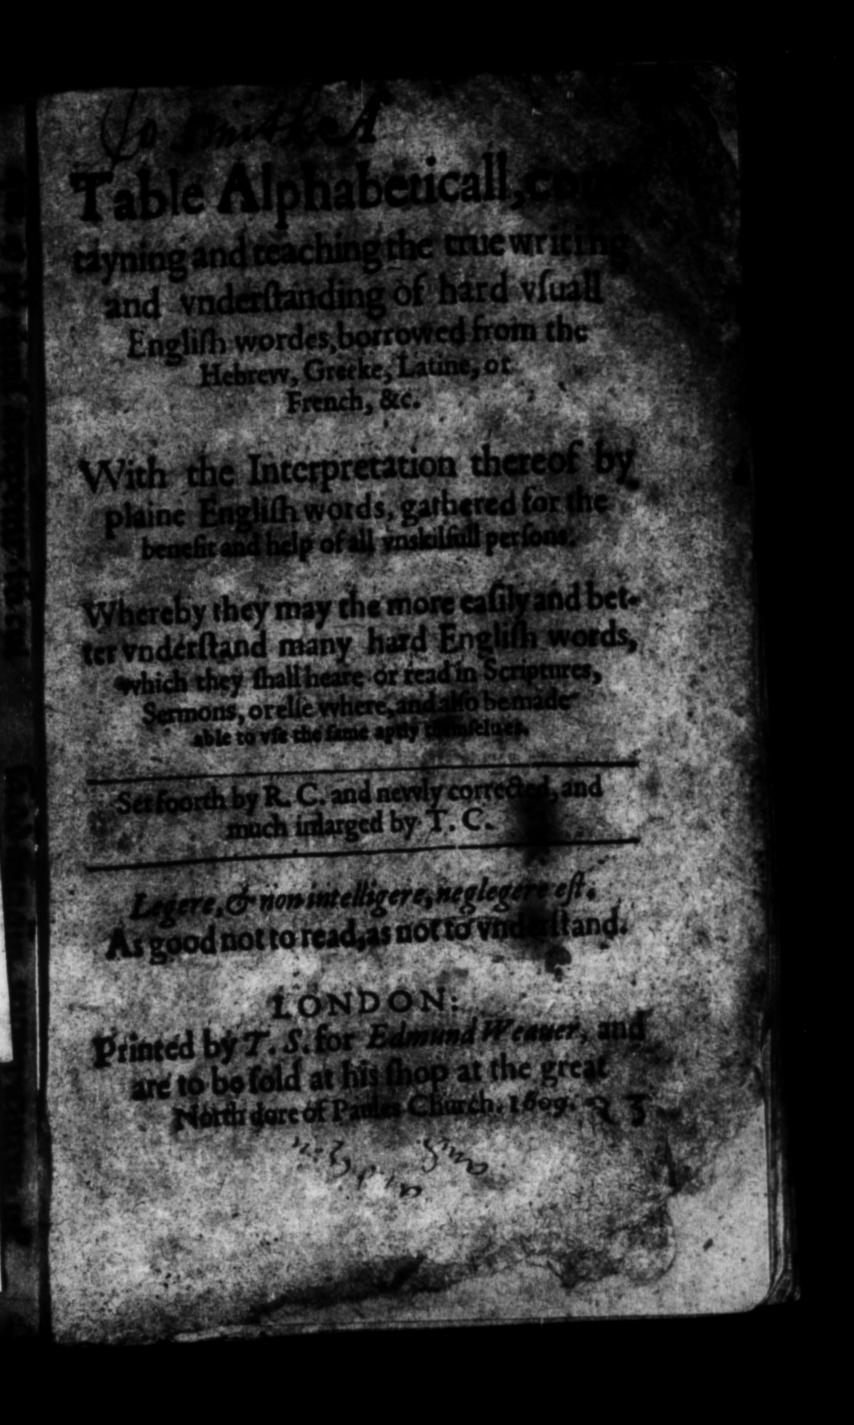 Jo Smith A
Table Alphabeticall, con-
tayning and teaching the true writing
and vnderſtanding of hard vſuall
Engliſh wordes, borrowed from the
Hebrew, Greeke, Latine, or
French, &c.
With the Interpretation thereof by
plaine Engliſh words, gathered for the
benefit and help of all vnskilfull perſons.
Whereby they may the more eaſily and bet-
ter vnderſtand many hard Engliſh words,
which they ſhall heare or read in Scriptures,
Sermons, or elſe where, and alſo be made
able to vſe the ſame aptly themſelues.
Set foorth by R. C. and newly corrected, and
much inlarged by T. C.
Legere, & non intelligere, neglegere eſt.
As good not to read, as not to vnderſtand.
LONDON:
Printed by T. S. for Edmund Weauer, and
are to be ſold at his ſhop at the great
North dore of Paules Church. 1609.